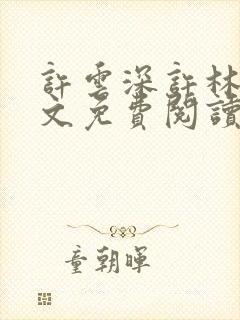 許雲深許林
文免費閱讀
童朝暉